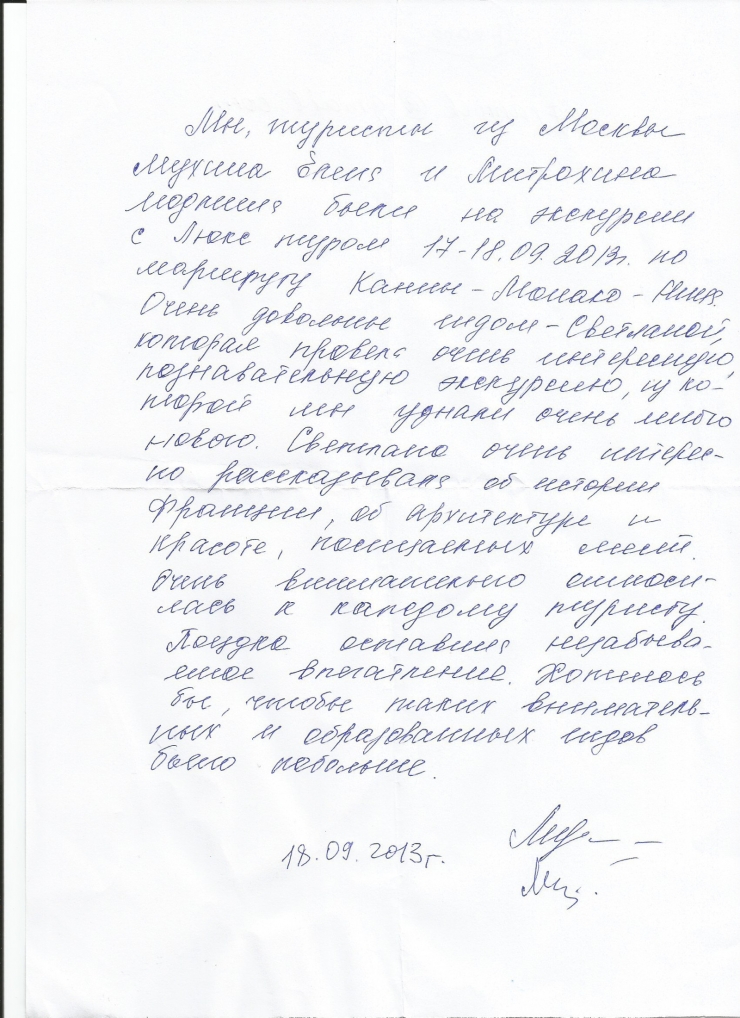 Мы, туристы из Москвы
Мухина Елена и Митрохина
Людмила были на экскурсии
с Люкс туром 17-18.09.2013г. по
маршруту Канны-Монако-Ницца.
Очень довольны гидом-Светланой,
которая провела очень интересную,
познавательную экскурсию, из ко-
торой мы узнали очень много
нового. Светлана очень интерес-
но рассказывала об истории
Франции, об архитектуре и
красоте, посещаемых мест.
Очень внимательно относи-
лась к каждому туристу.
Поездка оставила незабыва-
емое впечатление. Хотелось
бы, чтобы таких вниматель-
ных и образованных гидов
было побольше.
18.09.2013г.